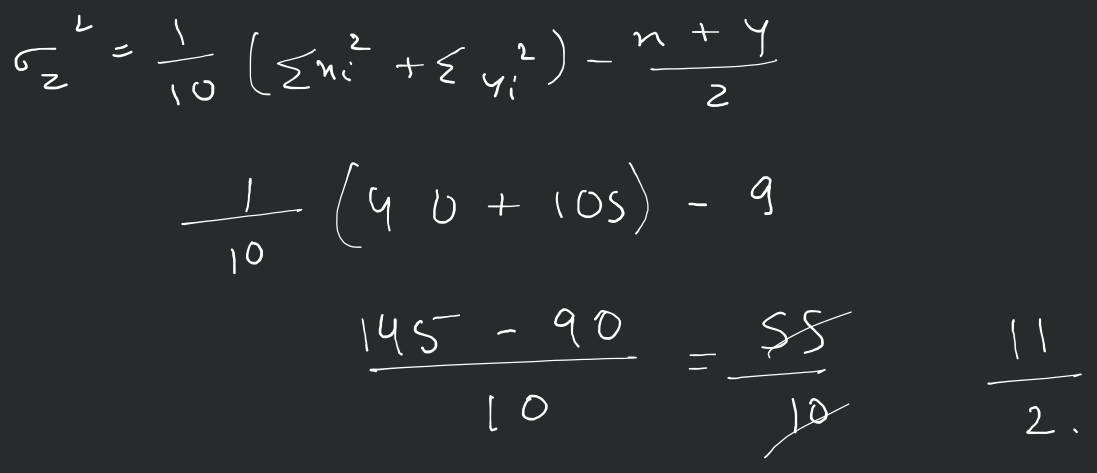 σ_z² = 1/10 (Σxi² + Σyi²) - x + y/2
1/10 (40 + 105) - 9
145 - 90/10 = 55/10 11/2.